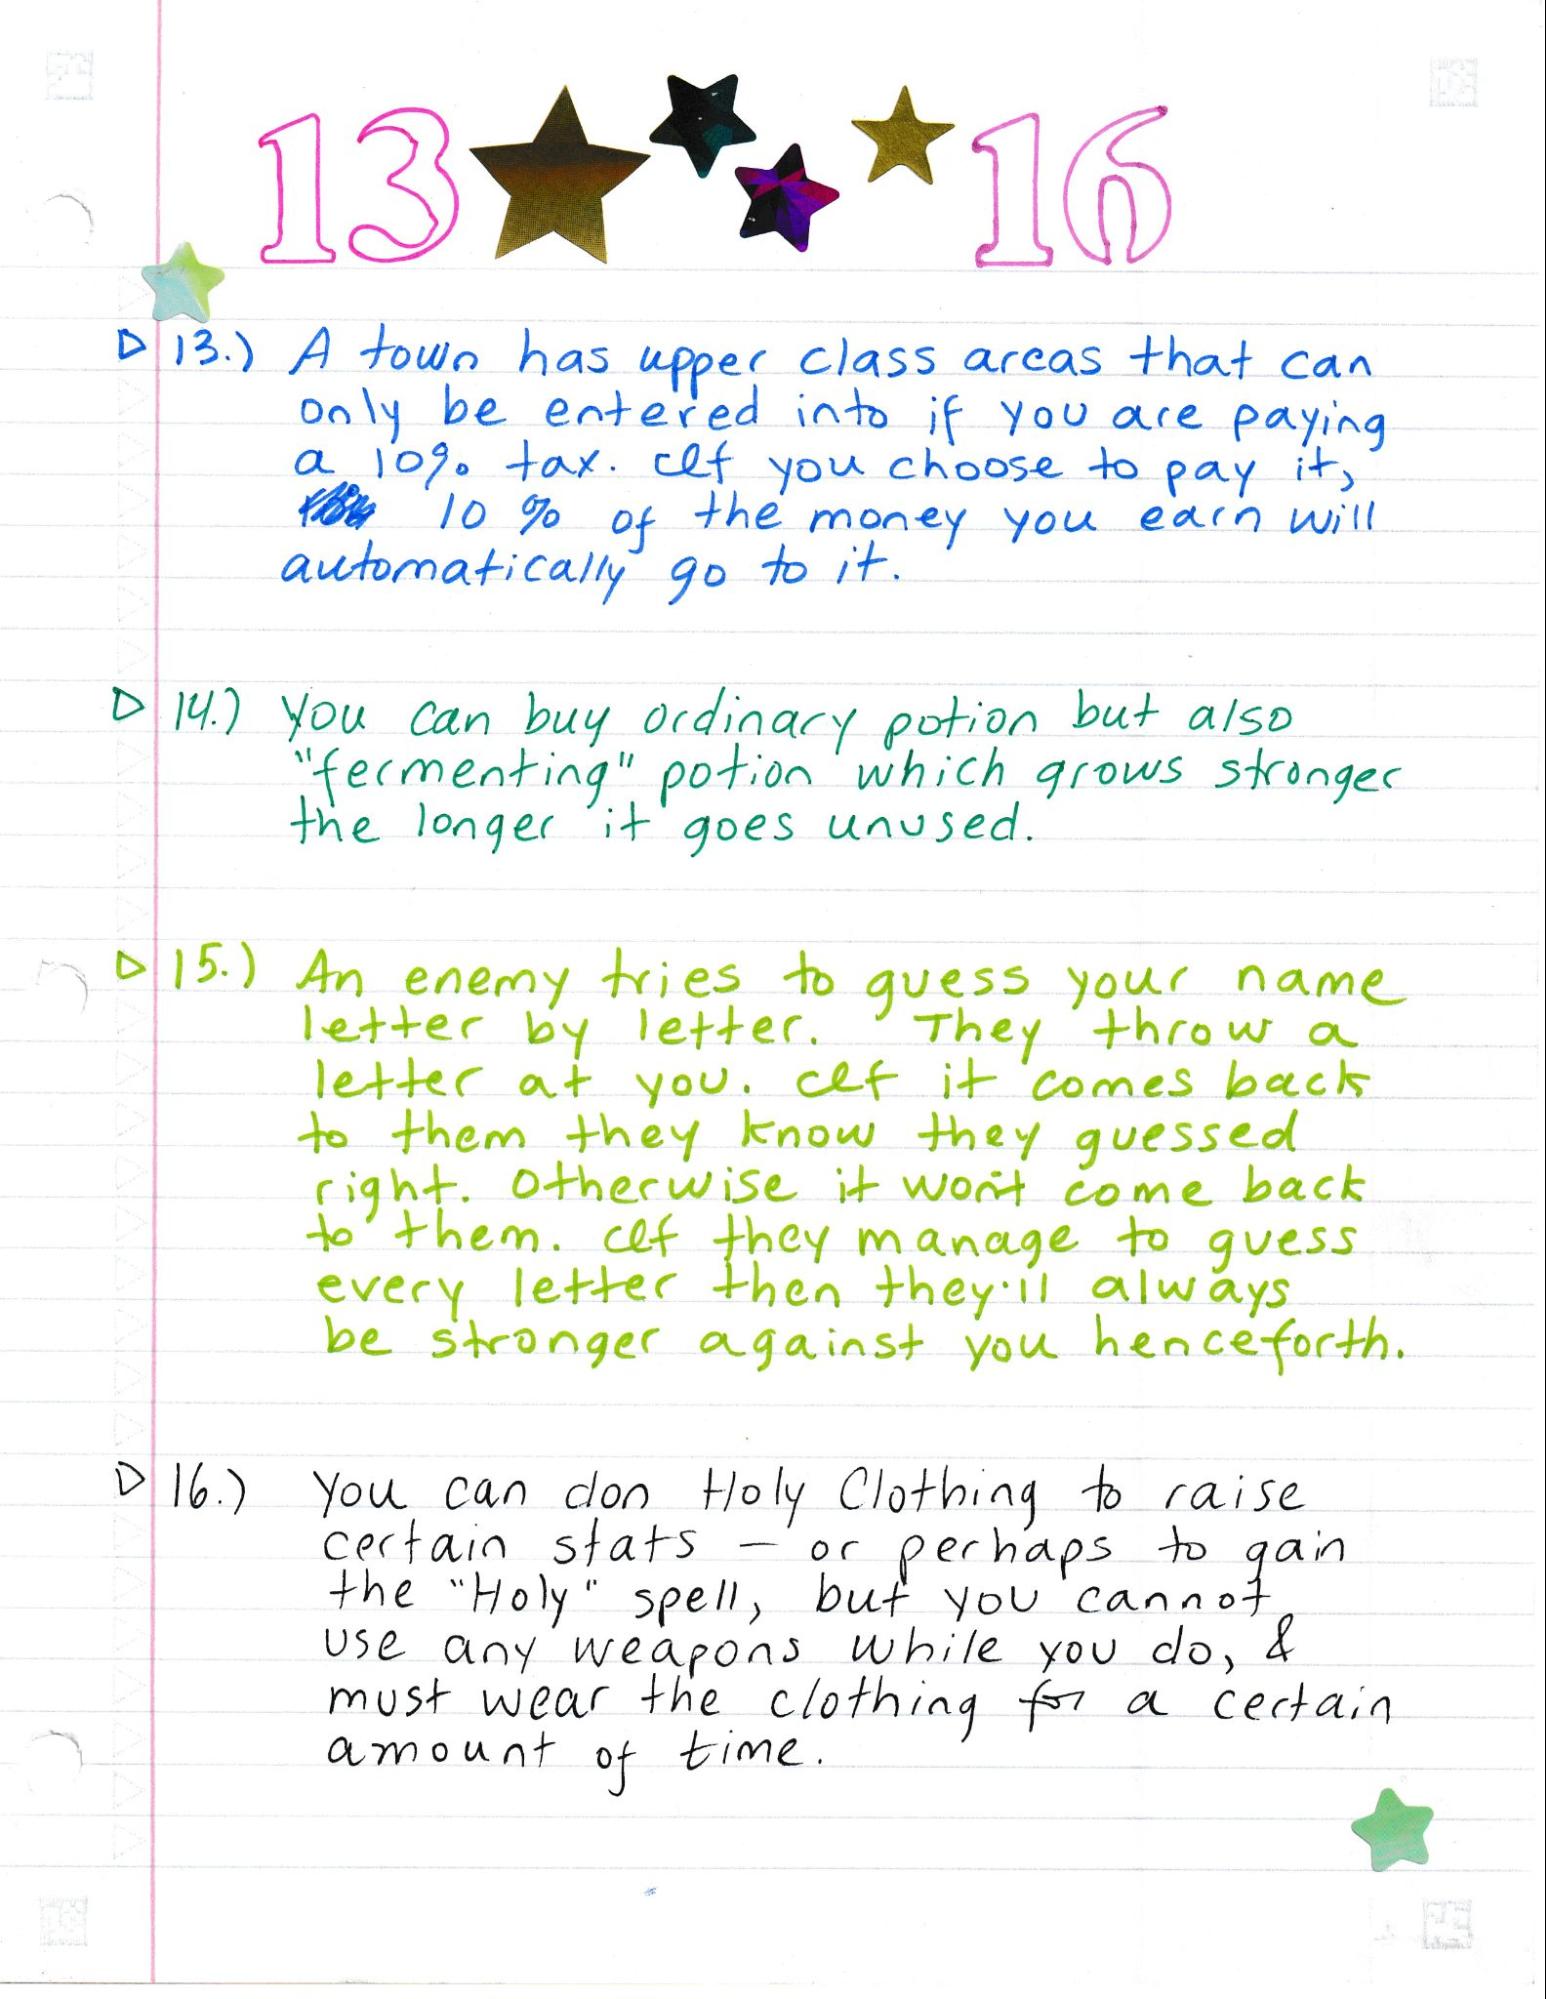 13 16
▷ 13.) A town has upper class areas that can
only be entered into if you are paying
a 10% tax. If you choose to pay it,
10% of the money you earn will
automatically go to it.
▷ 14.) You can buy ordinary potion but also
"fermenting" potion which grows stronger
the longer it goes unused.
▷ 15.) An enemy tries to guess your name
letter by letter. They throw a
letter at you. If it comes back
to them they know they guessed
right. Otherwise it won't come back
to them. If they manage to guess
every letter then they'll always
be stronger against you henceforth.
▷ 16.) You can don Holy Clothing to raise
certain stats – or perhaps to gain
the "Holy" spell, but you cannot
use any weapons while you do, &
must wear the clothing for a certain
amount of time.